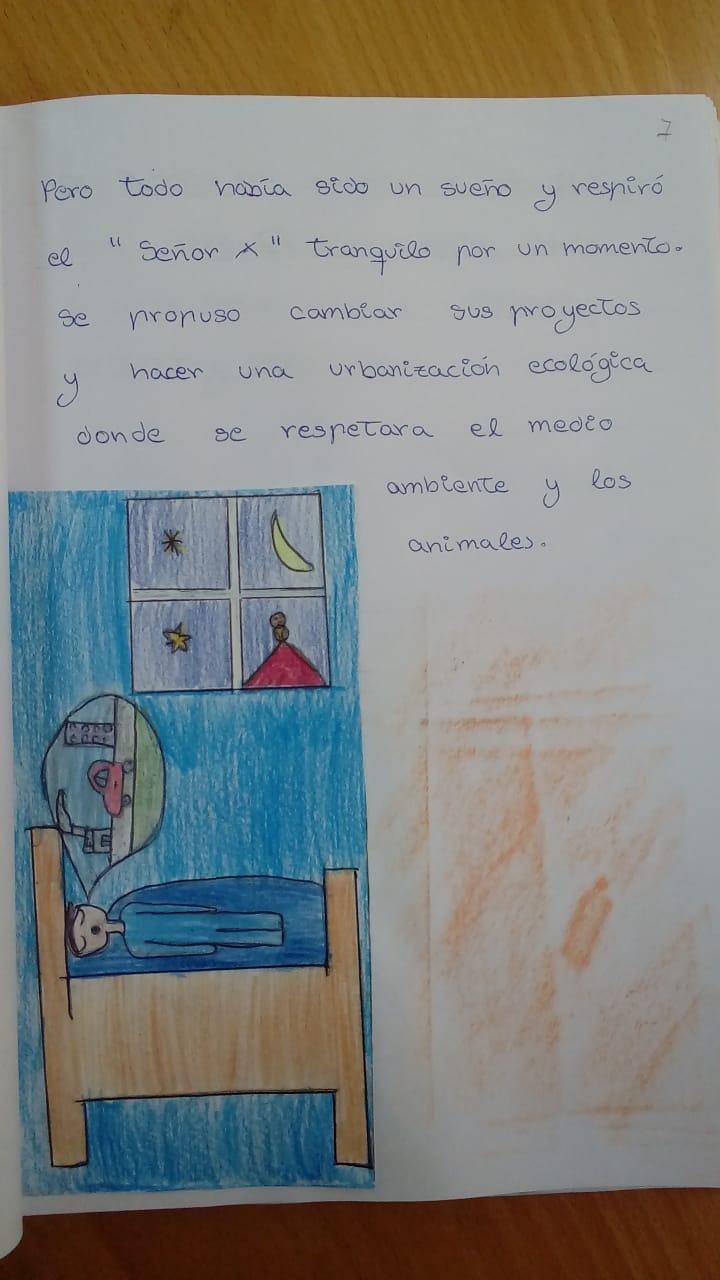 7
Pero todo había sido un sueño y respiró
el "Señor X" tranquilo por un momento.
Se propuso cambiar sus proyectos
y hacer una urbanización ecológica
donde se respetara el medio
ambiente y los
animales.